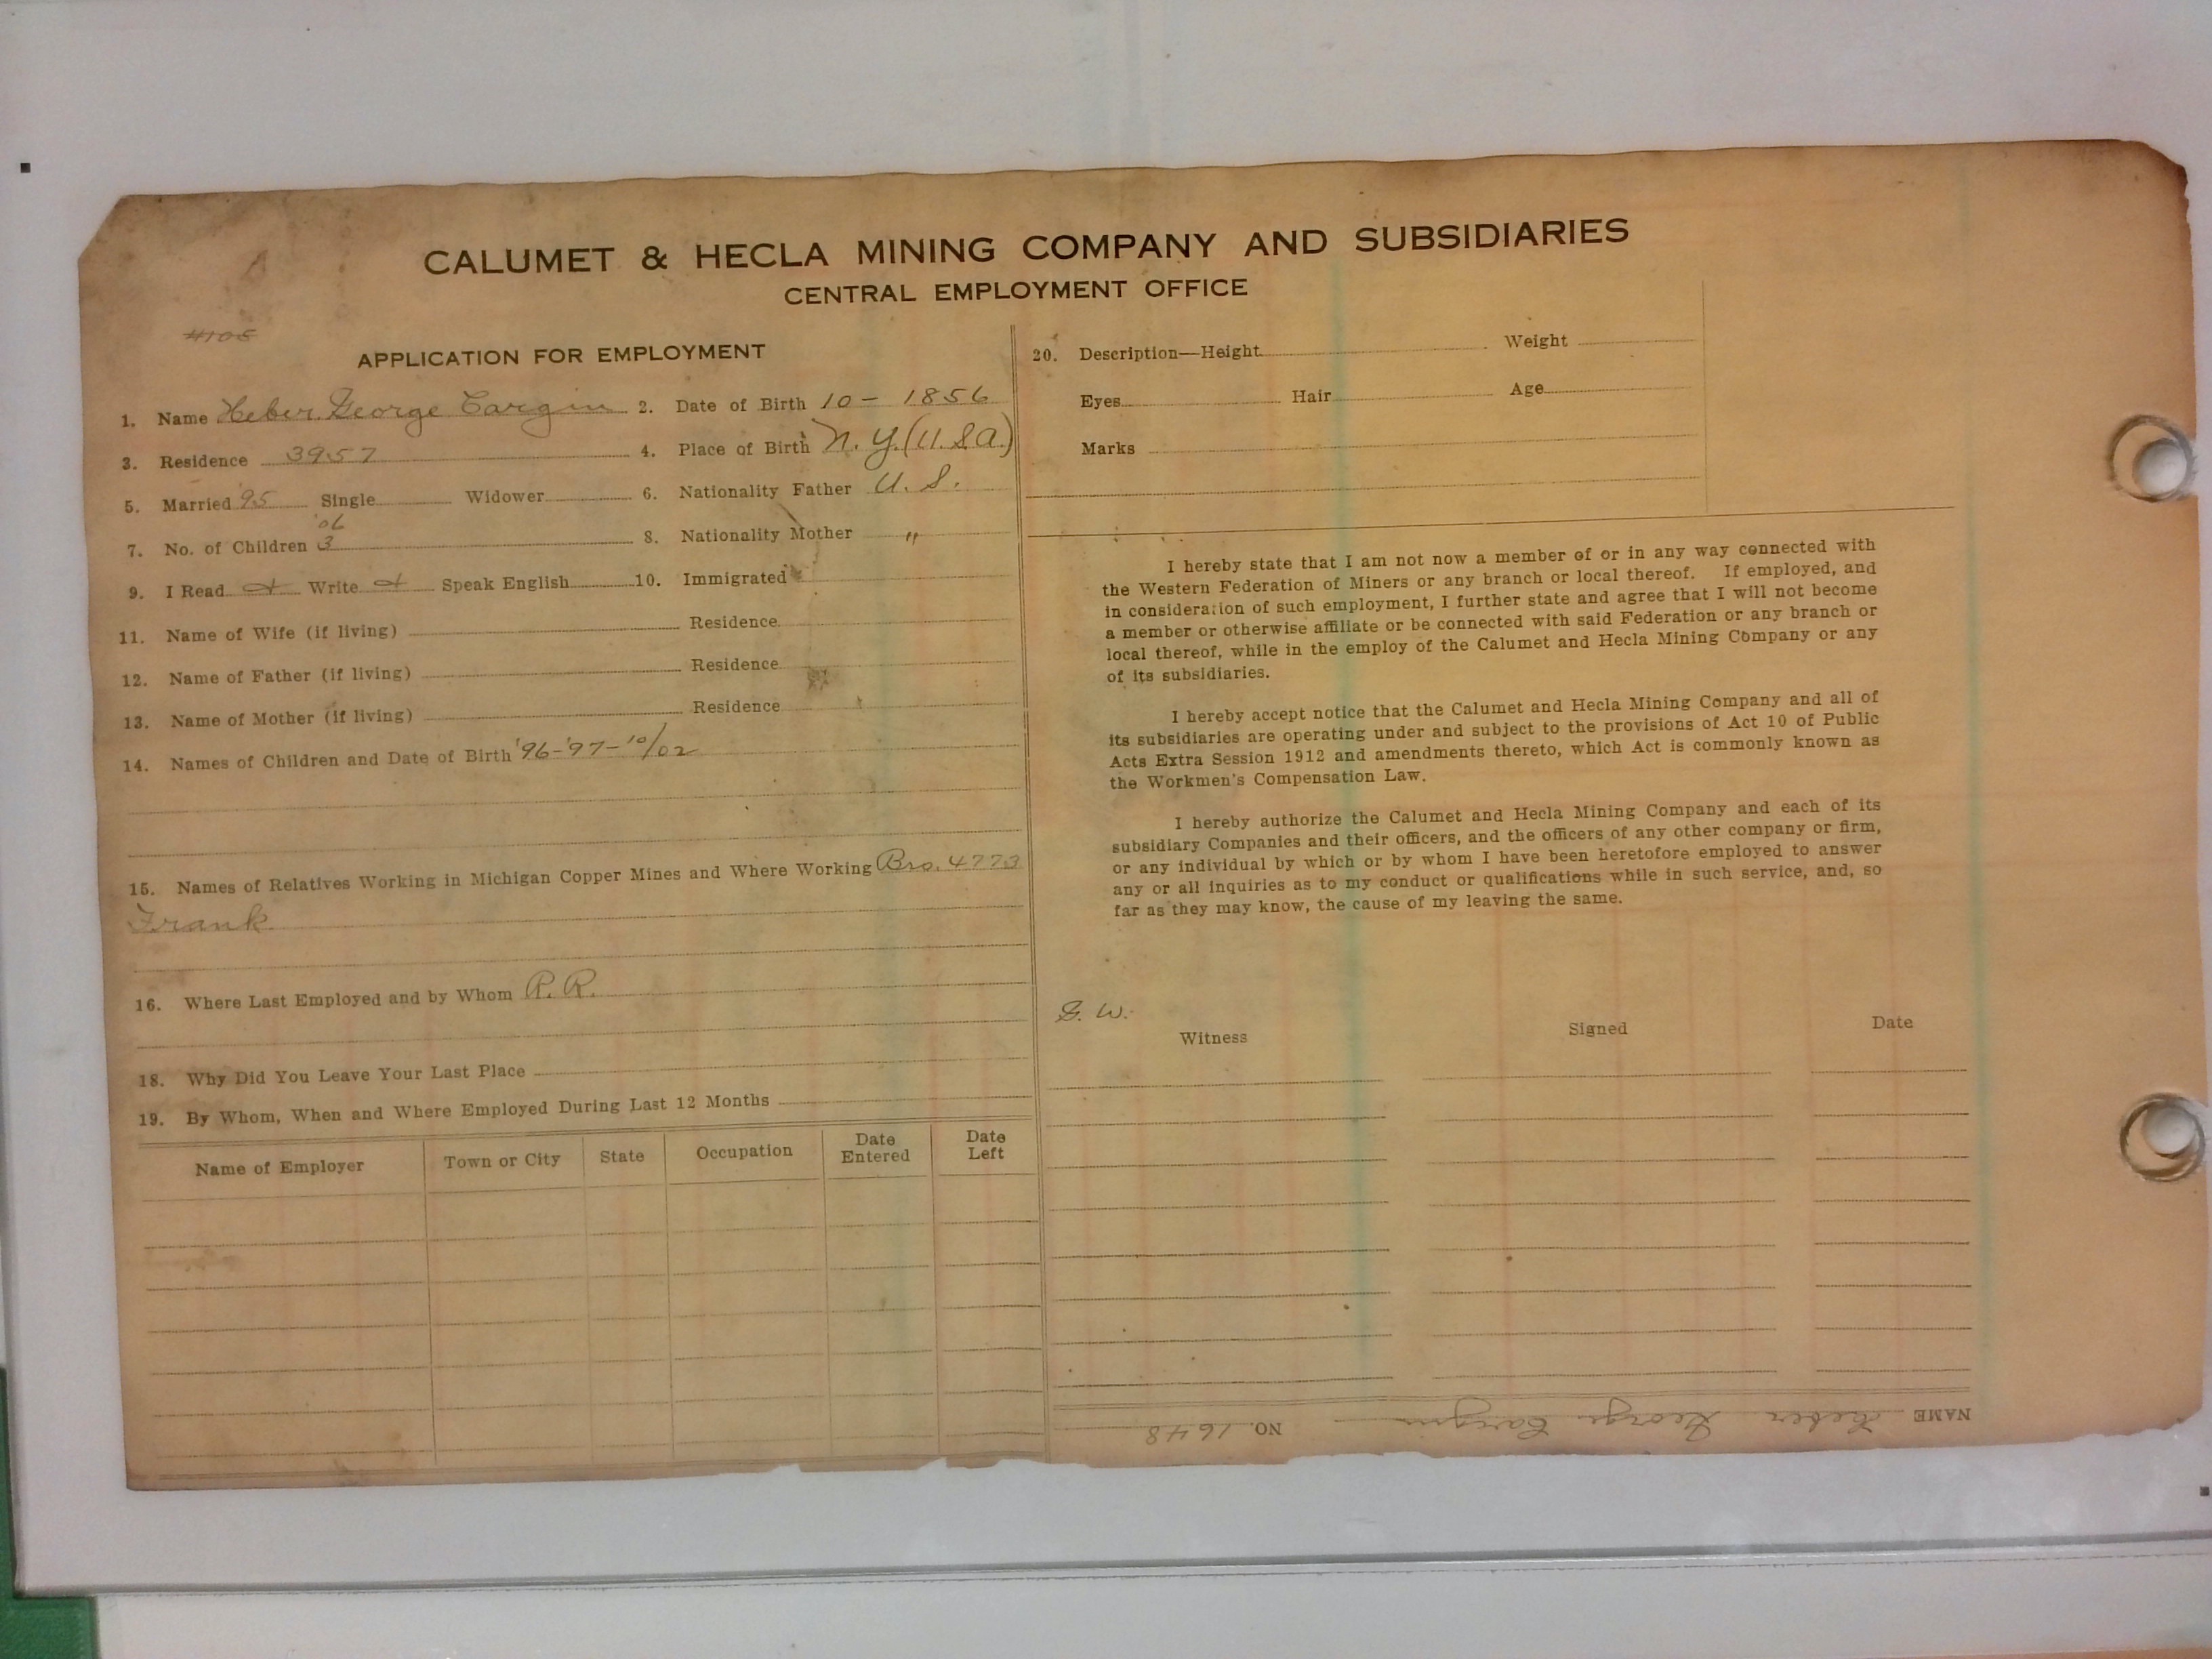 CALUMET & HECLA MINING COMPANY AND SUBSIDIARIES
CENTRAL EMPLOYMENT OFFICE
4105
APPLICATION FOR EMPLOYMENT
1. Name Heber George Cargin 2. Date of Birth 10 - 1856
3. Residence 3957 4. Place of Birth N.Y. (U.S.A.)
5. Married '95 Single Widower 6. Nationality Father U.S.
'06
7. No. of Children 3 8. Nationality Mother "
9. I Read Write Speak English 10. Immigrated
11. Name of Wife (if living) Residence
12. Name of Father (if living) Residence
13. Name of Mother (if living) Residence
14. Names of Children and Date of Birth '96-'97-10/02
15. Names of Relatives Working in Michigan Copper Mines and Where Working Bro. 4773
Frank
16. Where Last Employed and by Whom R.R.
18. Why Did You Leave Your Last Place
19. By Whom, When and Where Employed During Last 12 Months
Name of Employer Town or City State Occupation Date Entered Date Left
20. Description—Height Weight
Eyes Hair Age
Marks
I hereby state that I am not now a member of or in any way connected with
the Western Federation of Miners or any branch or local thereof. If employed, and
in consideration of such employment, I further state and agree that I will not become
a member or otherwise affiliate or be connected with said Federation or any branch or
local thereof, while in the employ of the Calumet and Hecla Mining Company or any
of its subsidiaries.
I hereby accept notice that the Calumet and Hecla Mining Company and all of
its subsidiaries are operating under and subject to the provisions of Act 10 of Public
Acts Extra Session 1912 and amendments thereto, which Act is commonly known as
the Workmen's Compensation Law.
I hereby authorize the Calumet and Hecla Mining Company and each of its
subsidiary Companies and their officers, and the officers of any other company or firm,
or any individual by which or by whom I have been heretofore employed to answer
any or all inquiries as to my conduct or qualifications while in such service, and, so
far as they may know, the cause of my leaving the same.
S. W.
Witness Signed Date
NAME Heber George Cargin NO. 1648